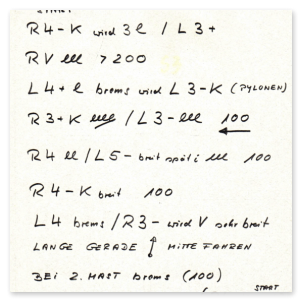 R4-K wird 3 l / L3+
RV lll > 200
L4+ l brems wird L3-K (PYLONEN)
R3+K / L3- lll 100
R4 ll / L5- breit spät i lll 100
R4-K breit 100
L4 brems / R3- wird V sehr breit
LANGE GERADE ↕ MITTE FAHREN
BEI 2. MAST brems (100)
START